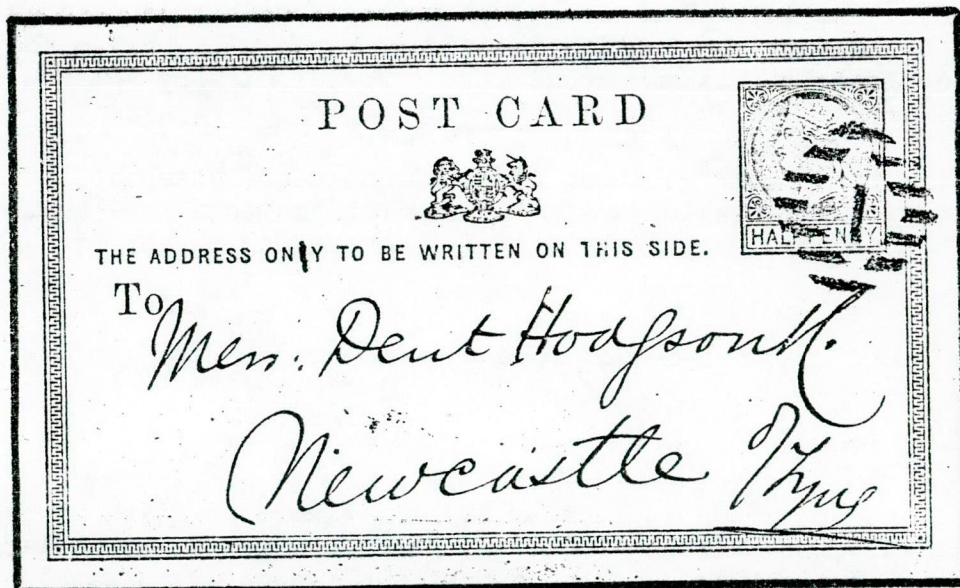 POST CARD
HALFPENNY
THE ADDRESS ONLY TO BE WRITTEN ON THIS SIDE.
To
Mess: Dent Hodgson
Newcastle o/Tyne